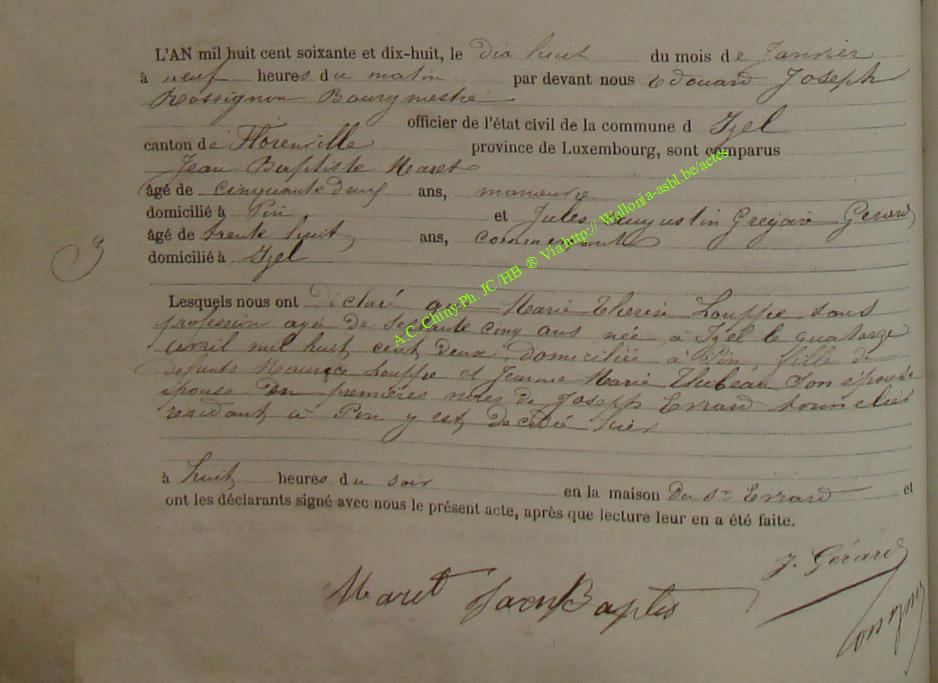 L'AN mil huit cent soixante et dix-huit, le dix huit du mois de Janvier
à neuf heures du matin par devant nous Edouard Joseph
Rossignon Bourgmestre
officier de l'état civil de la commune d Izel
canton de Florenville province de Luxembourg, sont comparus
Jean Baptiste Maret
âgé de cinquante deux ans, manoeuvre
domicilié à Pin et Jules Augustin Grégoire Gerard
âgé de trente huit ans, commerçant
domicilié à Izel
3
Lesquels nous ont déclaré que Marie Thérèse Louppe sans
profession agée de septante cinq ans née à Izel le quatorze
avril mil huit cent deux, domiciliée à Pin, fille de
défunts Maurice Louppe et Jeanne Marie Thibeau son épouse
épouse en premières noces de Joseph Errard tonnelier
résidant à Pin y est décédée hier
à huit heures du soir en la maison du Sr Errard et
ont les déclarants signé avec nous le présent acte, après que lecture leur en a été faite.
J. Gérard
Maret Jean Baptis
A.C. Chiny-Ph. JC/HB ® Via http:// Wallonia-asbl.be/actes